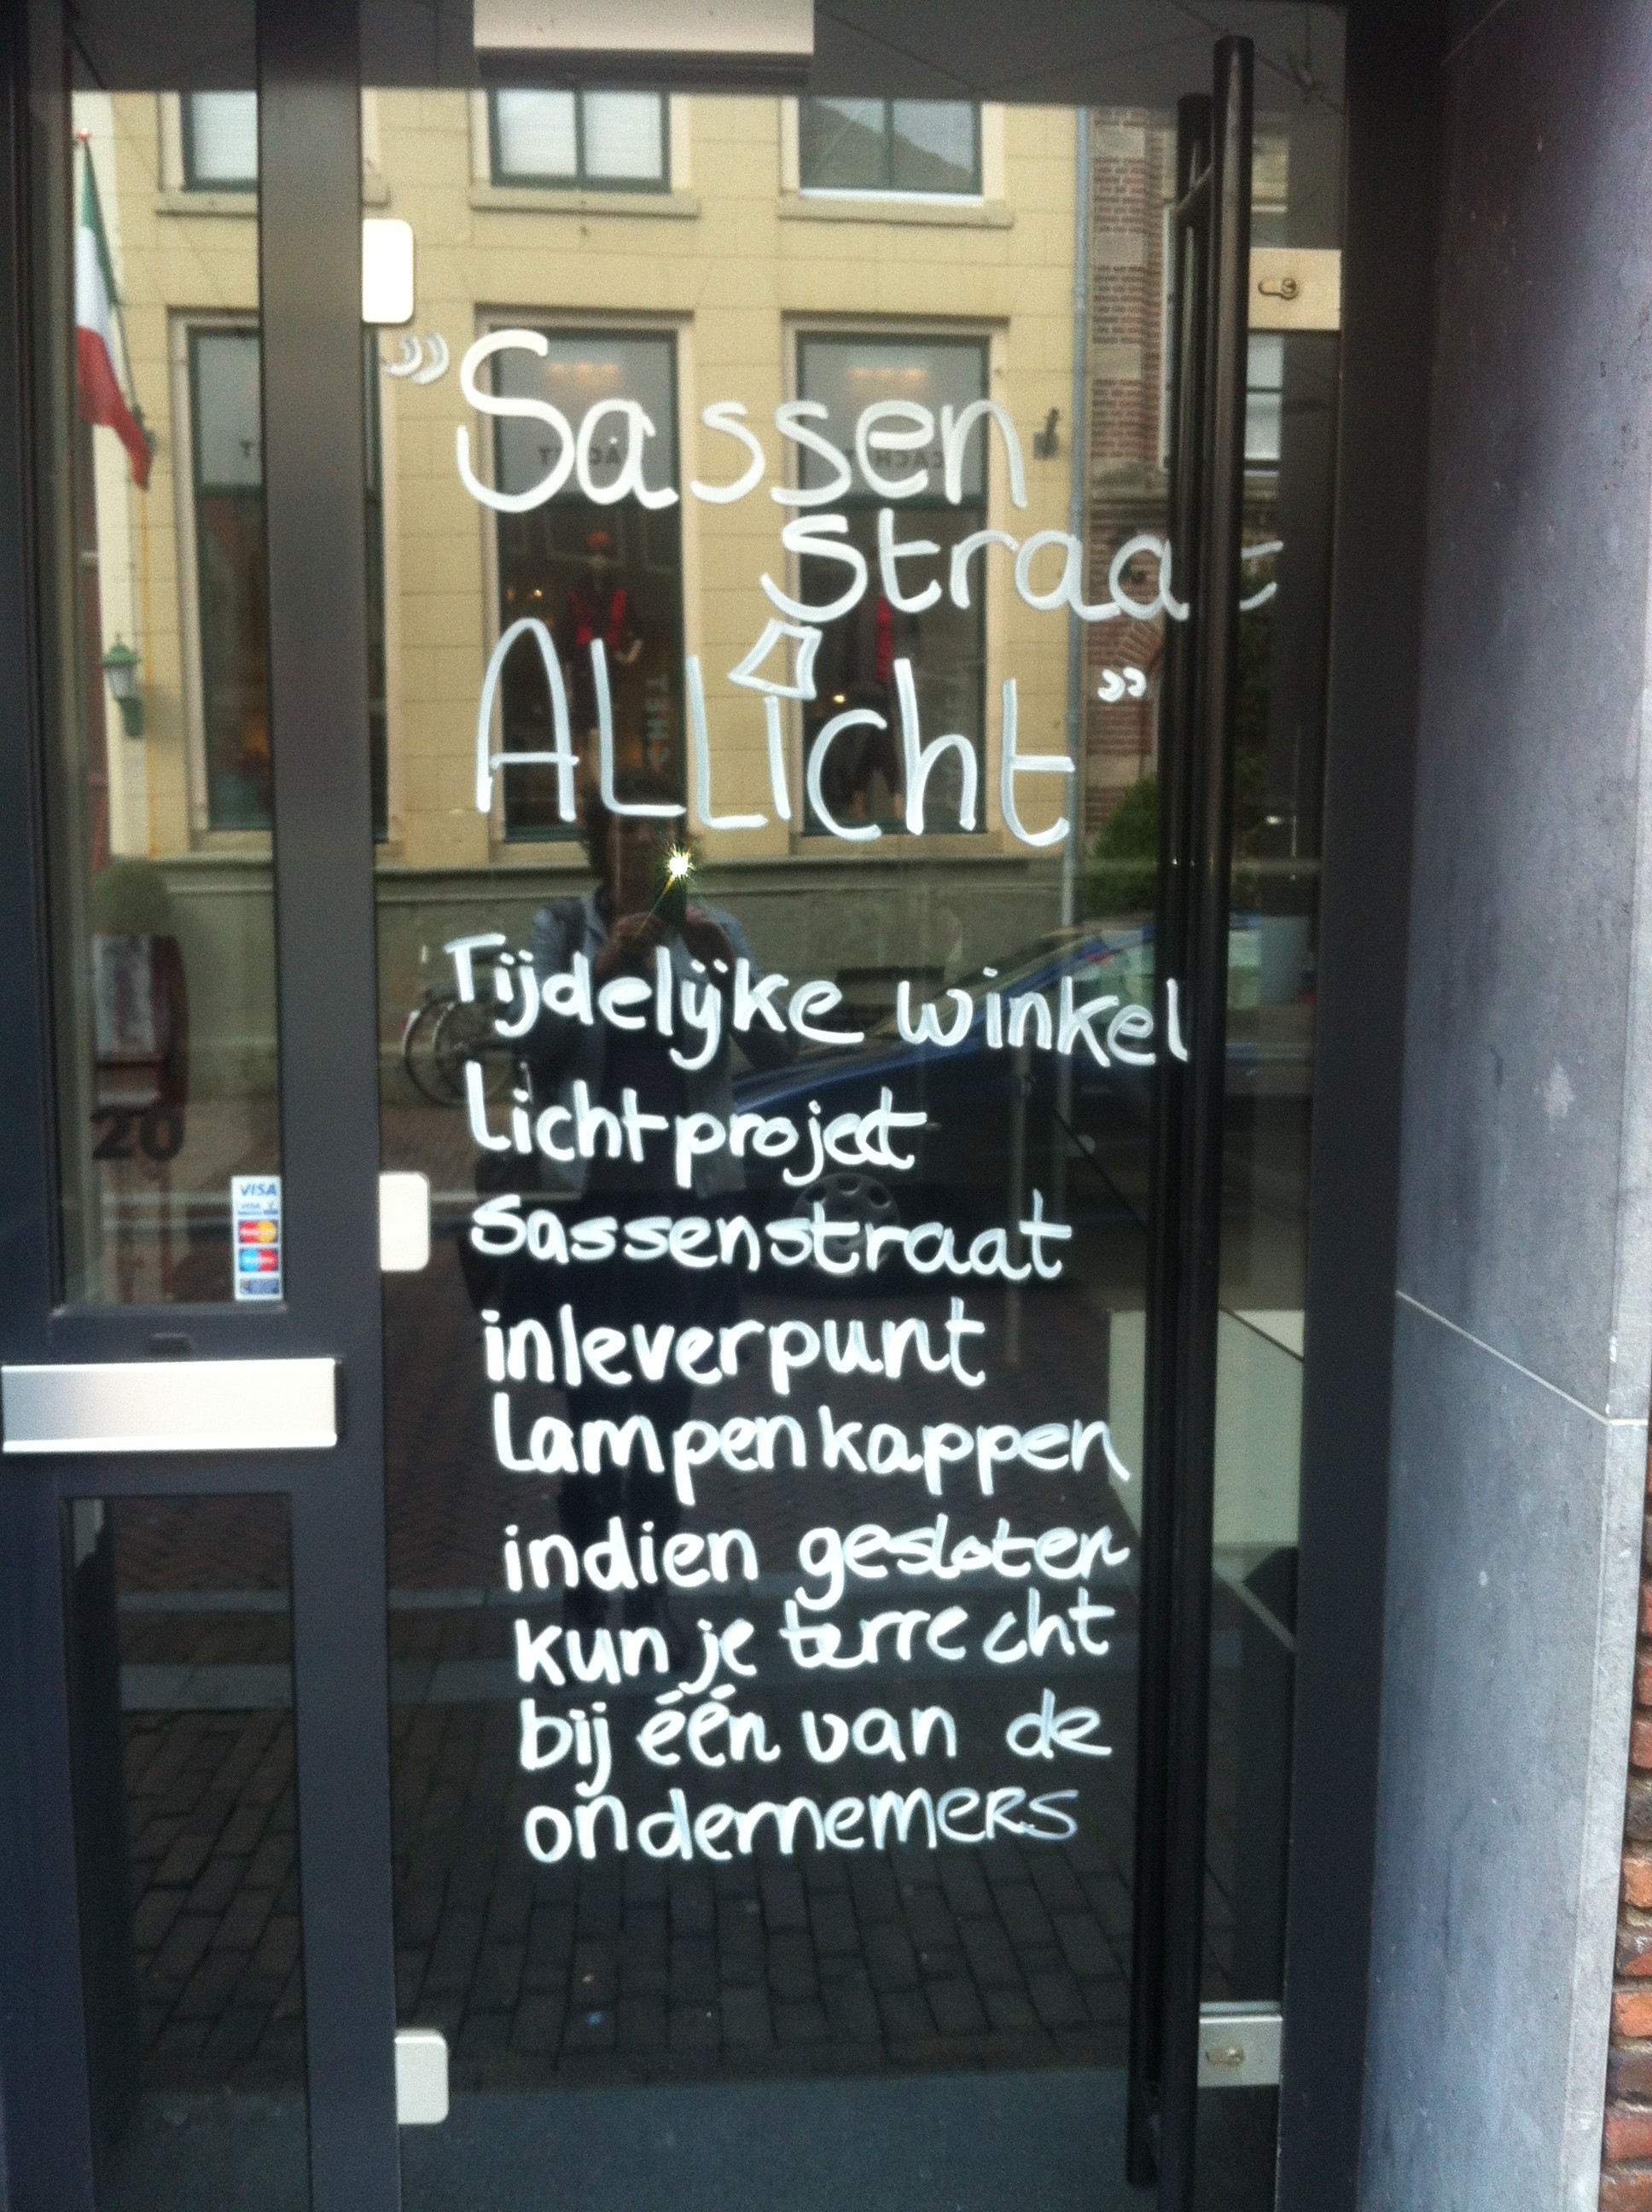 "Sassen
straat
ALLicht"
Tijdelijke winkel
Lichtproject
Sassenstraat
inleverpunt
Lampenkappen
indien gesloten
kun je terrecht
bij één van de
ondernemers
20
VISA